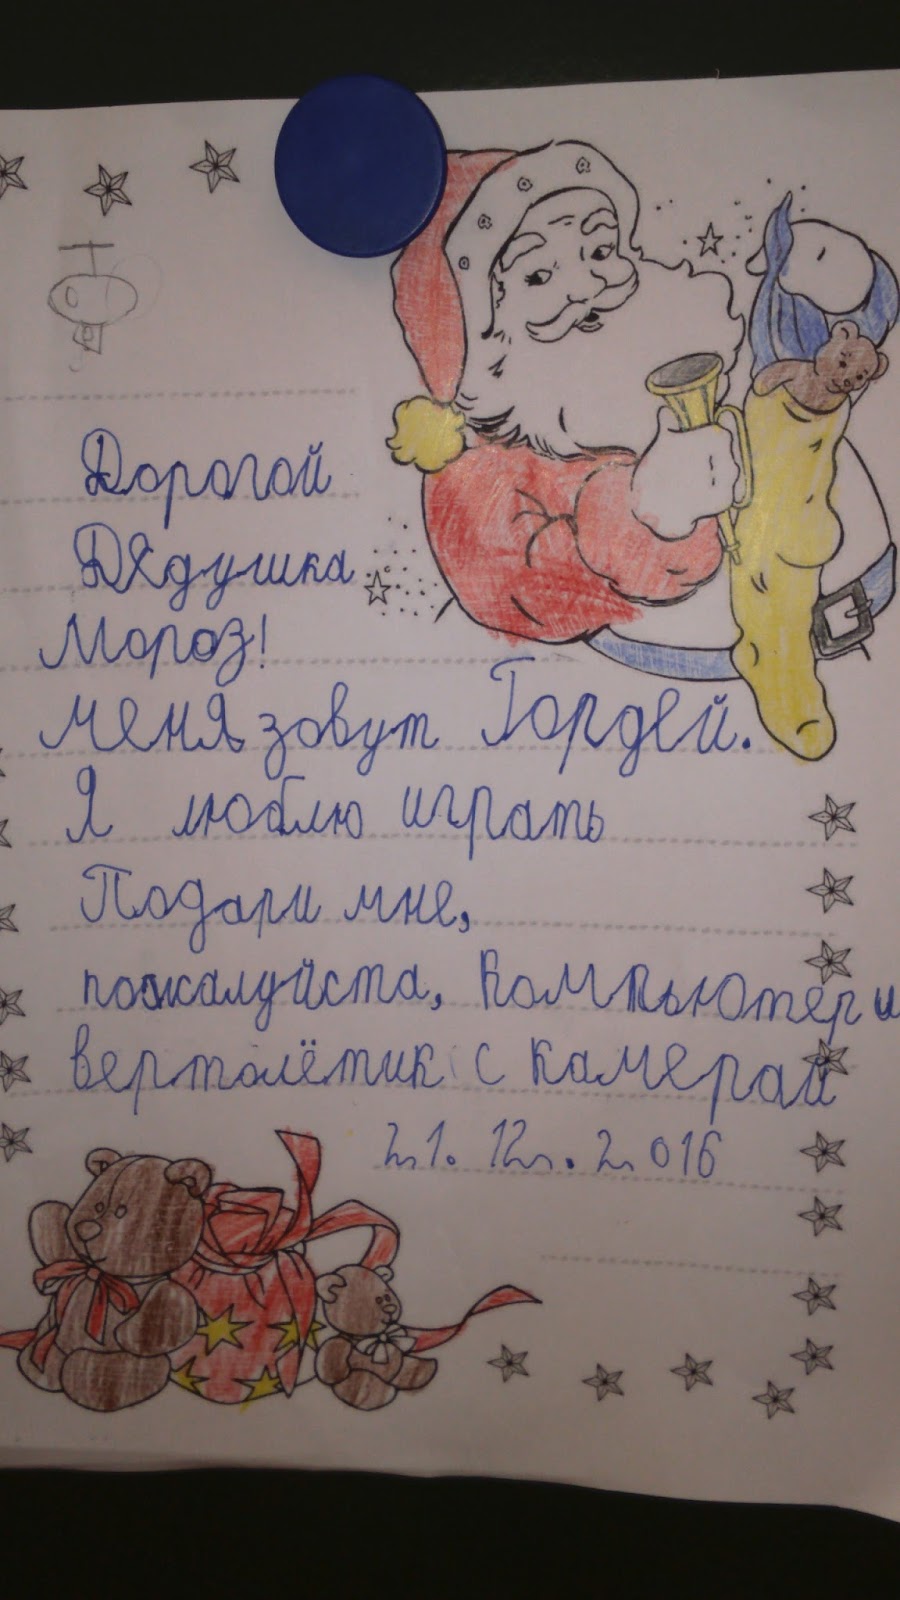 Дорогой
Дядушка
Мороз!
меня зовут Гордей.
Я люблю играть
Подари мне,
пожалуйста, компьютер и
вертолётик с камерай
21. 12. 2016